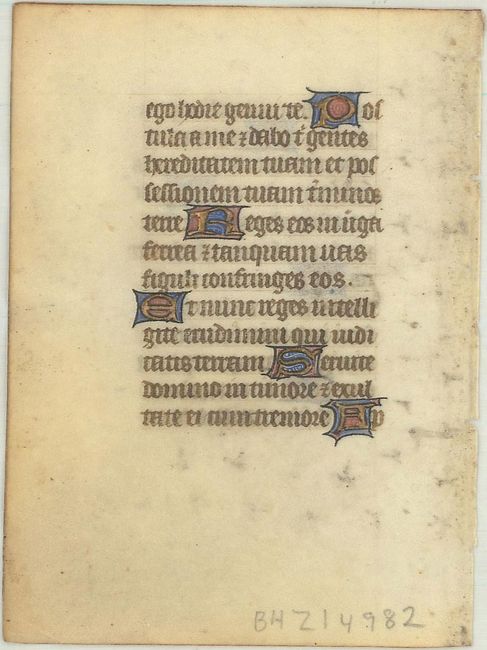 ego hodie genui te. Pos
tula a me ⁊ dabo t̄ gentes
hereditatem tuam et pos
sessionem tuam t̄minos
terre Reges eos in ūga
ferrea ⁊ tanquam uas
figuli confringes eos.
Et nunc reges intelli
gite erudimini qui iudi
catis terram Seruite
domino in timore ⁊ exul
tate ei cum tremore Ap
BHZ14982